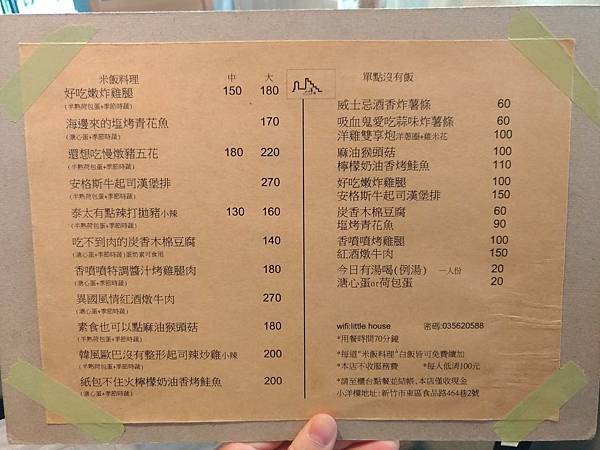 米飯料理 中 大
好吃嫩炸雞腿 150 180
(半熟荷包蛋+季節時蔬)
海邊來的塩烤青花魚 170
(溏心蛋+季節時蔬)
還想吃慢燉豬五花 180 220
(半熟荷包蛋+季節時蔬)
安格斯牛起司漢堡排 270
(半熟荷包蛋+季節時蔬)
泰太有點辣打拋豬小辣 130 160
(半熟荷包蛋+季節時蔬)
吃不到肉的炭香木棉豆腐 140
(溏心蛋+季節時蔬)蛋奶素可食用
香噴噴特調醬汁烤雞腿肉 180
(溏心蛋+季節時蔬)
異國風情紅酒燉牛肉 270
(溏心蛋+季節時蔬)
素食也可以點麻油猴頭菇 180
(半熟荷包蛋+季節時蔬)
韓風歐巴沒有整形起司辣炒雞小辣 200
(半熟荷包蛋+季節時蔬)
紙包不住火檸檬奶油香烤鮭魚 200
(溏心蛋+季節時蔬)
單點沒有飯
威士忌酒香炸薯條 60
吸血鬼愛吃蒜味炸薯條 60
洋雞雙享炮洋蔥圈+雞米花 100
麻油猴頭菇 100
檸檬奶油香烤鮭魚 110
好吃嫩炸雞腿 100
安格斯牛起司漢堡排 150
炭香木棉豆腐 60
塩烤青花魚 90
香噴噴烤雞腿 100
紅酒燉牛肉 150
今日有湯喝(例湯) 一人份 20
溏心蛋or荷包蛋 20
wifi:little house 密碼:035620588
*用餐時間70分鐘
*每道"米飯料理"白飯皆可免費續加
*本店不收服務費 *每人低消100元
*請至櫃台點餐並結帳、本店僅收現金
小洋樓地址:新竹市東區食品路464巷2號